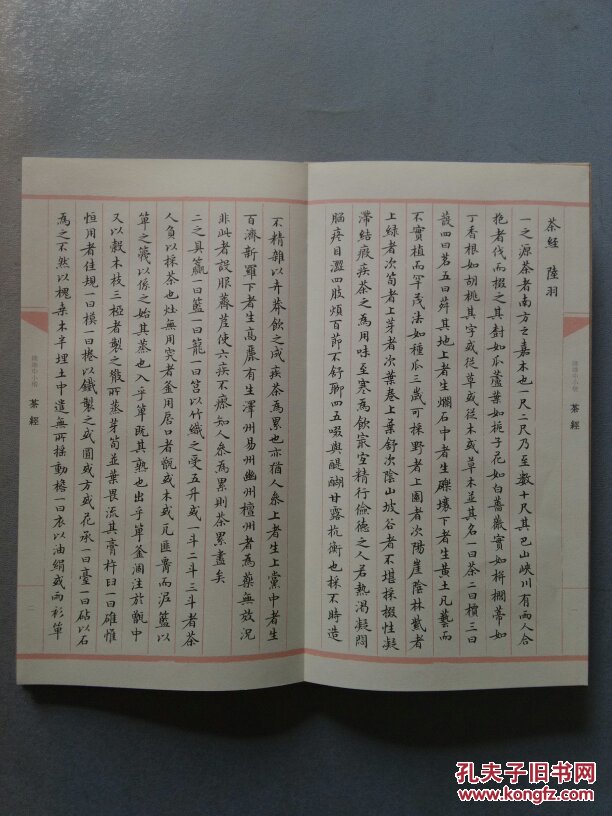 茶經 陸羽
一之源茶者南方之嘉木也一尺二尺乃至數十尺其巴山峽川有兩人合
抱者伐而掇之其樹如瓜蘆葉如梔子花如白薔薇實如栟櫚蒂如
丁香根如胡桃其字或從草或從木或草木並其名一曰茶二曰檟三曰
蔎四曰茗五曰荈其地上者生爛石中者生礫壤下者生黃土凡藝而
不實植而罕茂法如種瓜三歲可採野者上園者次陽崖陰林紫者
上綠者次筍者上芽者次葉卷上葉舒次陰山坡谷者不堪採掇性凝
滯結瘕疾茶之為用味至寒為飲最宜精行儉德之人若熱渴凝悶
腦疼目澀四肢煩百節不舒聊四五啜與醍醐甘露抗衡也採不時造
不精雜以卉莽飲之成疾茶為累也亦猶人參上者生上黨中者生
百濟新羅下者生高麗有生澤州易州幽州檀州者為藥無效況
非此者設服薺苨使六疾不瘳知人參為累則茶累盡矣
二之具籝一曰籃一曰籠一曰筥以竹織之受五升或一斗二斗三斗者茶
人負以採茶也灶無用突者釜用唇口者甑或木或瓦匪腰而泥籃以
箄之篾以係之始其蒸也入乎箄既其熟也出乎箄釜涸注於甑中
又以穀木枝三椏者製之散所蒸芽筍並葉畏流其膏杵臼一曰碓惟
恒用者佳規一曰模一曰棬以鐵製之或圓或方或花承一曰臺一曰砧以石
為之不然以槐桑木半埋土中遣無所搖動檐一曰衣以油絹或雨衫單
茶經
一
茶經
二
孔夫子旧书网
www.kongfz.com